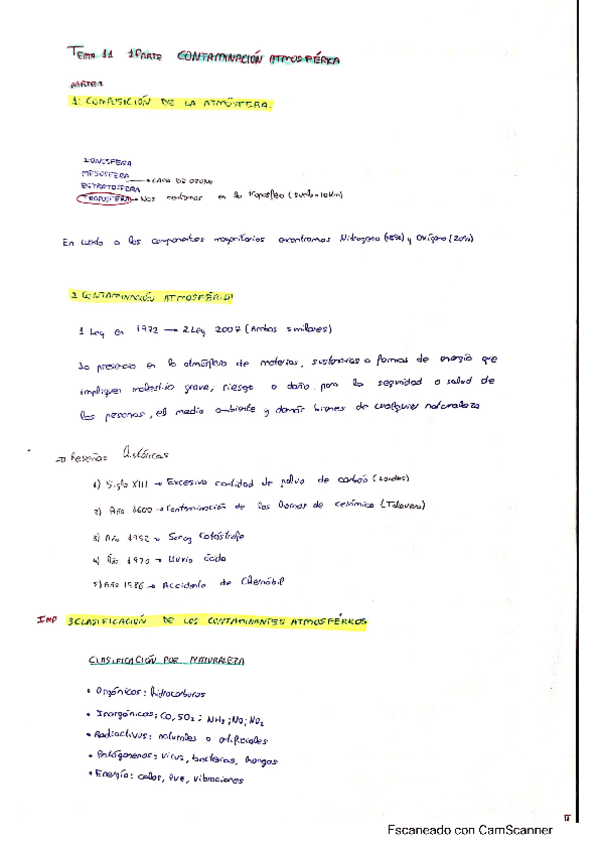 Tema 11 1 Parte CONTAMINACIÓN ATMOSFÉRICA
PARTE 1
1: COMPOSICIÓN DE LA ATMÓSFERA.
IONOSFERA
MESOSFERA
→ CAPA DE OZONO
ESTRATOSFERA
TROPOSFERA → Nos centramos en la troposfera (suelo-10Km)
En cuanto a los componentes mayoritarios encontramos Nitrógeno (78%) y Oxígeno (20%)
2 CONTAMINACIÓN ATMOSFÉRICA
1 Ley en 1972 → 2 Ley 2007 (Ambas similares)
La presencia en la atmósfera de materias, sustancias o formas de energía que
impliquen molestia grave, riesgo o daño para la seguridad o salud de
las personas, el medio ambiente y demás bienes de cualquier naturaleza
→ Reseñas históricas
1) Siglo XIII → Excesiva cantidad de polvo de carbón (Londres)
2) Año 1600 → Contaminación de los hornos de cerámica (Talavera)
3) Año 1952 → Smog Catástrofe
4) Año 1970 → Lluvia ácida
5) Año 1986 → Accidente de Chernóbil
IMP 3 CLASIFICACIÓN DE LOS CONTAMINANTES ATMOSFÉRICOS
CLASIFICACIÓN POR NATURALEZA
• Orgánicos: hidrocarburos
• Inorgánicos: CO, SO2; NH3; NO; NO2
• Radiactivos: naturales o artificiales
• Patógenos: virus, bacterias, hongos
• Energía: calor, vibraciones
Escaneado con CamScanner